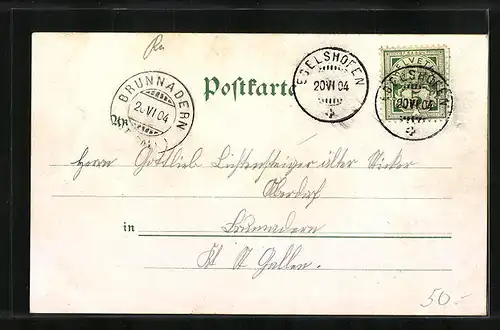 BRUNNADERN
20 VI 04
Postkarte
EGELSHOFEN
20 VI 04
HELVETIA
EGELSHOFEN
20 VI 04
An
Herrn Gottlieb Lichtensteiger älter Sticker
Oberdorf
in Brunnadern
Kt St Gallen.
50.-